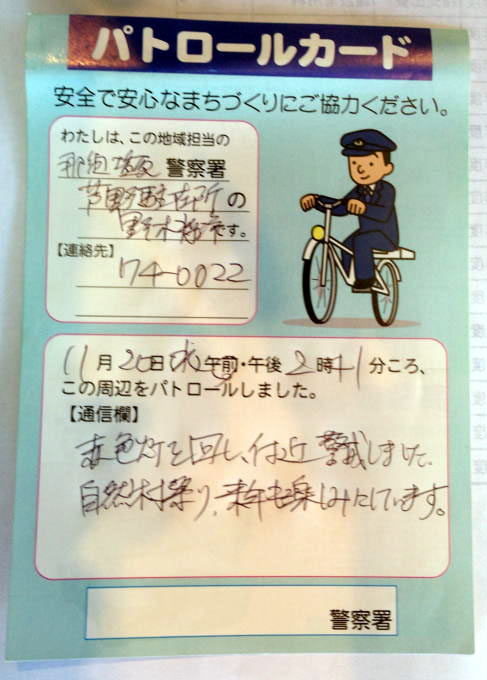 パトロールカード
安全で安心なまちづくりにご協力ください。
わたしは、この地域担当の
那須塩原 警察署
芦野駐在所の
です。
【連絡先】
74-0022
11月20日(水)午前・午後2時41分ころ、
この周辺をパトロールしました。
【通信欄】
赤色灯を回し、付近警戒しました。
自然村祭り、来年も楽しみにしています。
警察署